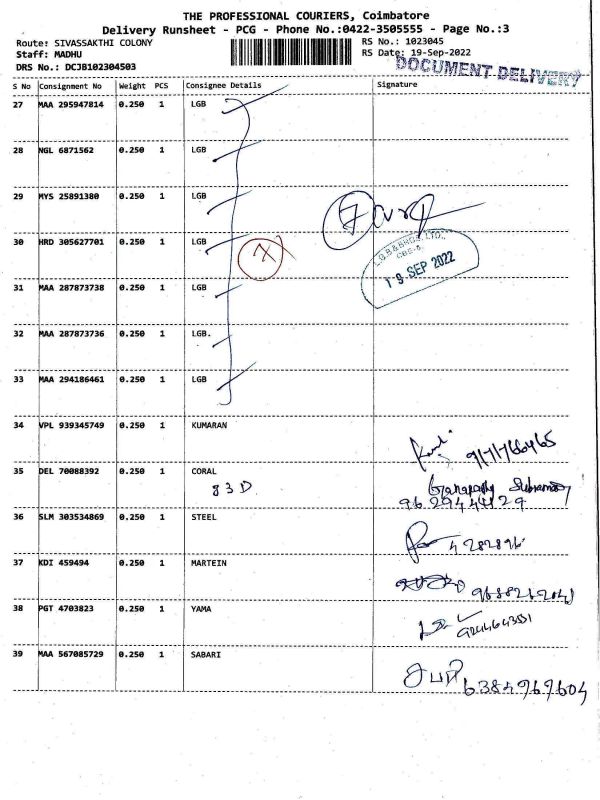 THE PROFESSIONAL COURIERS, Coimbatore
Delivery Runsheet - PCG - Phone No.:0422-3505555 - Page No.:3
Route: SIVASSAKTHI COLONY
RS No.: 1023045
Staff: MADHU
RS Date: 19-Sep-2022
DRS No.: DCJB102304503
DOCUMENT DELIVERY
S No Consignment No Weight PCS Consignee Details Signature
27 MAA 295947814 0.250 1 LGB
28 NGL 6871562 0.250 1 LGB
29 MYS 25891380 0.250 1 LGB
7
30 HRD 305627701 0.250 1 LGB
L.G.B.&BROS. LTD.,
CBE-6.
19 SEP 2022
31 MAA 287873738 0.250 1 LGB
32 MAA 287873736 0.250 1 LGB.
33 MAA 294186461 0.250 1 LGB
34 VPL 939345749 0.250 1 KUMARAN
9171766465
35 DEL 70088392 0.250 1 CORAL
83D
Ganapathy Subramany
9629444129
36 SLM 303534869 0.250 1 STEEL
4282896
37 KDI 459494 0.250 1 MARTEIN
38 PGT 4703823 0.250 1 YAMA
39 MAA 567085729 0.250 1 SABARI
சபரி
6384969604